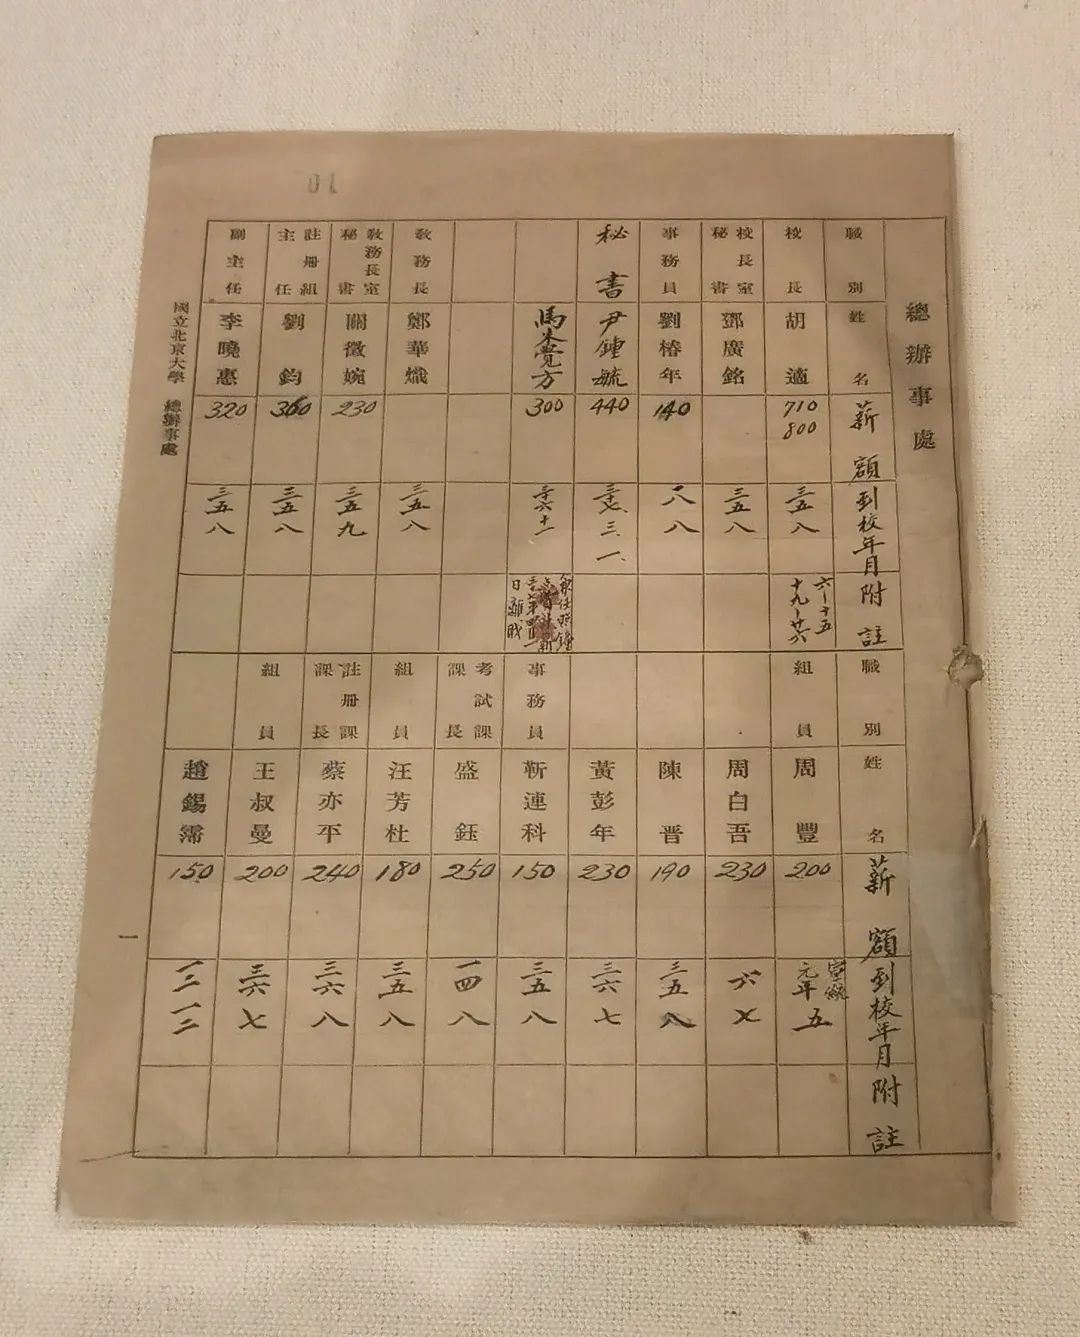 01
總辦事處
職別 姓名 薪額 到校年月 附註
校長 胡適 710 800 三五 八 六—十五 十九—廿六
校長室秘書 鄧廣銘 三五 八
事務員 劉椿年 140 八 八
秘書 尹鍾毓 440 三七、三、一、
馬朱覺方 300 三六十一
教務長 鄭華熾 三五 八
教務長室秘書 關徵婉 230 三五 九
註冊組主任 劉鈞 360 三五 八
副主任 李曉惠 320 三五 八
職別 姓名 薪額 到校年月 附註
組員 周豐 200 宣統元年 五
周白吾 230 六 七
陳晋 190 三五 八
黃彭年 230 三六 七
事務員 靳連科 150 三五 八
考試課課長 盛鈺 250 一四 八
組員 汪芳杜 180 三五 八
註冊課課長 蔡亦平 240 三六 八
組員 王叔曼 200 三六 七
趙錫霈 150 一二 一二
國立北京大學 總辦事處
一